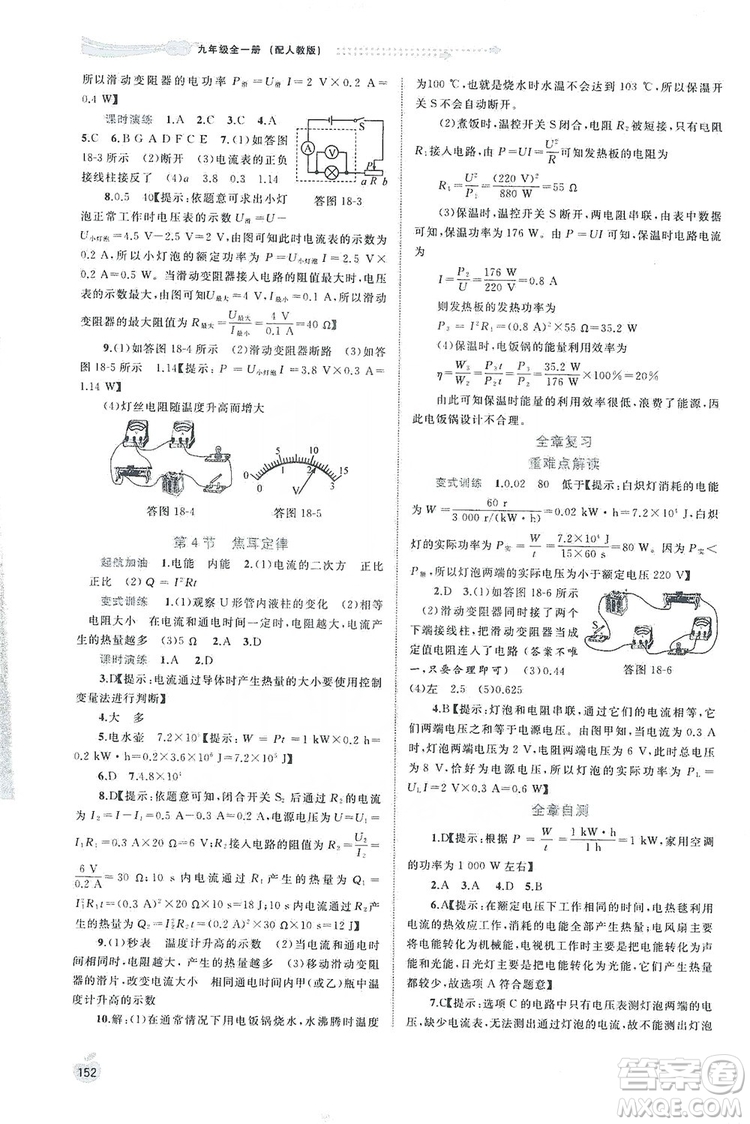 九年级全一册 (配人教版)
所以滑动变阻器的电功率 P滑=U滑I=2 V×0.2 A=
0.4 W】
课时演练 1.A 2.C 3.A 4.A
5.C 6.B G A D F C E 7.(1)如答图
18-3 所示 (2)断开 (3)电流表的正负
接线柱接反了 (4)a 3.8 1.14
答图 18-3
8.0.5 40【提示:依题意可求出小灯
泡正常工作时电压表的示数 U灯=U-
U小灯泡=2.5 V,由图可知此时电流表的示数为
0.2 A,所以小灯泡的额定功率 P=U小灯泡I=2.5 V×
0.2 A=0.5 W。当滑动变阻器接入电路的阻值最大时,电压
表的示数最大,由图可知U最大=4 V,I最小=0.1 A,所以滑动
变阻器的最大阻值为 R最大=U最大/I最小=4 V/0.1 A=40 Ω】
9.(1)如答图 18-4 所示 (2)滑动变阻器断路 (3)如
答图 18-5 所示 1.14【提示:P=U小灯泡I=3.8 V×0.3 A=
1.14 W】
(4)灯丝电阻随温度升高而增大
答图 18-4 答图 18-5
第 4 节 焦耳定律
起航加油 1.电能 内能 2.(1)电流的二次方 正比
正比 (2)Q=I²Rt
变式训练 1.(1)观察 U 形管内液柱的变化 (2)相等
电阻大小 在电流和通电时间一定时,电阻越大,电流产生
的热量越多 (3)5 Ω 2.A 3.D
课时演练 1.A 2.D
3.D【提示:电流通过导体时产生热量的大小要使用控制
变量法进行判断】
4.大 多
5.电水壶 7.2×10⁵【提示:依题意可知,W=Pt=
0.2 kW·h=0.2×3.6×10⁶ J=7.2×10⁵ J】
6.D 7.4.8×10⁵
8.D【提示:依题意可知,闭合开关 S₂ 后通过 R₂ 的电流
为 I₂=I-I₁=0.5 A-0.3 A=0.2 A,电源电压为 U=U₁
=I₁R₁=0.3 A×20 Ω=6 V;R₂ 的阻值为 R₂=U₂/I₂=
6 V/0.2 A=30 Ω;10 s 内电流通过 R₁ 产生的热量为 Q₁=
I₁²R₁t=(0.3 A)²×20 Ω×10 s=18 J;10 s 内电流通过 R₂
产生的热量为 Q₂=I₂²R₂t=(0.2 A)²×30 Ω×10 s=12 J】
9.(1)秒表 温度计升高的示数 (2)在电流和通电时间
相同时,电阻越大,产生的热量越多 (3)移动滑动变阻
器的滑片,改变电流大小 相同时间内甲(或乙)瓶中温
度计升高的示数
10.解:(1)在通常情况下用电饭锅烧水,水沸腾时温度
为100 ℃,也就是烧水时水温不会达到 103 ℃,所以保温开
关 S 不会自动断开。
(2)煮饭时,温控开关 S 闭合,电阻 R₂ 被短接,只有电阻
R₁接入电路,由 P=U²/R 可知发热板的电阻为
R₁=U²/P₁=(220 V)²/880 W=55 Ω
(3)保温时,温控开关 S 断开,两电阻串联,由表中数据可
知保温功率为 176 W。由 P=UI 可知保温时电路电流
为
I=P₂/U=176 W/220 V=0.8 A
则发热板的发热功率为
P₃=I²R₁=(0.8 A)²×55 Ω=35.2 W
(4)保温时,电饭锅电能的利用效率为
η=W₃/W₂=P₃t/P₂t=P₃/P₂=35.2 W/176 W×100%=20%
由此可知保温时能量的利用效率很低,浪费了能源,因此
电饭锅设计不合理。
全章复习
重难点解读
变式训练 1.0.02 80 低于【提示:白炽灯消耗的电能
为 W=60 r/3 000 r/(kW·h)=0.02 kW·h=7.2×10⁴ J,白炽
灯的实际功率为 P实=W/t=7.2×10⁴ J/15×60 s=80 W,因为 P实<
P额,所以灯泡两端的电压为小于额定电压 220 V】
2.D 3.(1)如答图 18-6 所示
(2)滑动变阻器同时接了两个
下端接线柱,把滑动变阻器当成
定值电阻接入了电路(答案不唯
一,只要合理即可) (3)0.44
答图 18-6
(4)左 2.5 (5)0.625
4.B【提示:灯泡和电阻串联时,通过它们的电流相等,它
们两端的电压等于电源电压。由图甲知,当电流为 0.3 A
时,灯泡两端的电压为 2 V,电阻两端的电压为 6 V,总电压
为 8 V,恰好为电源电压,所以,灯泡的实际功率为 P=
UL I=2 V×0.3 A=0.6 W】
全章自测
1.D【提示:根据 P=W/t=1 kW·h/1 h=1 kW,家用空调
的功率为 1 000 W 左右】
2.A 3.A 4.D 5.B
6.A【提示:在额定电压下工作相同的时间,电热毯利用
电流的热效应工作,电能全部产生热量;电风扇大部分
电能转化为机械能,电视机工作时大部分电能转化为声能
和光能,日光灯主要把电能转化为光能,所以电热毯产生的
热量最多。故答案应选择 A】
7.C【提示:选项 C 的电路中的电压表测灯泡两端的电
压,缺少电流表,无法测出通过灯泡的电流,所以不能测灯泡
152